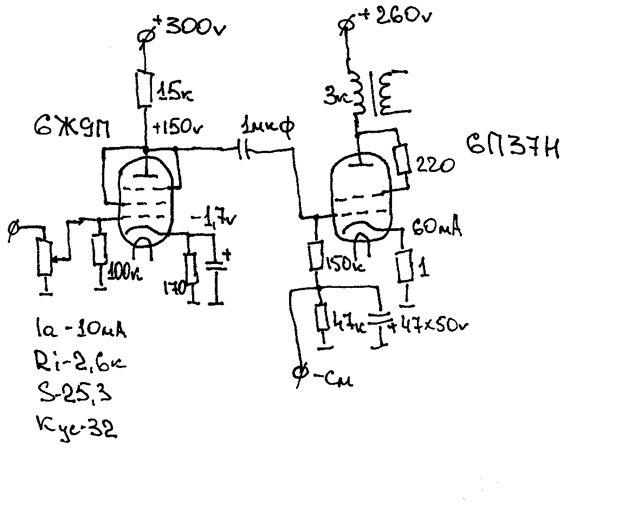 +300v
+260v
15к
3к
6Ж9П
+150v
1мкФ
6П37Н
220
-1,7v
60мА
100к
170
+
150к
1
47к
+47x50v
-см
Ia-10мА
Ri-2,6к
S-25,3
Кус-32